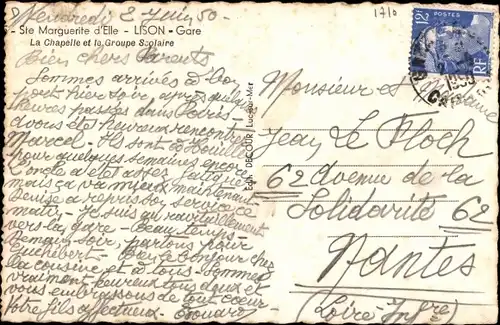 Vendredi 2 Juin 50 -
1710
- Ste Marguerite d'Elle - LISON - Gare
La Chapelle et le Groupe Scolaire
Bien chers Parents
Sommes arrivés à bon
port hier soir, après quelques
heures passées dans Paris
avons été heureux rencontrer
Marcel - Ils sont à
pour quelques semaines encore
L'oncle a été assez fatigué
mais ça va mieux maintenant
Denise a repris son service ce
matin - Je suis au ravitaillement
vers la gare - Beau temps -
Demain soir, partons pour
Bonjour cher
la cousine et à tous. Sommes
vraiment heureux tous deux et
vous embrassons de tout cœur
Votre fils affectueux - Edouard
Edit. DECOUR, Luc-sur-Mer
12F
POSTES
RF
1950
Monsieur et Madame
Jean Le Floch
62 Avenue de la
Solidarité 62
Nantes
(Loire Infre)